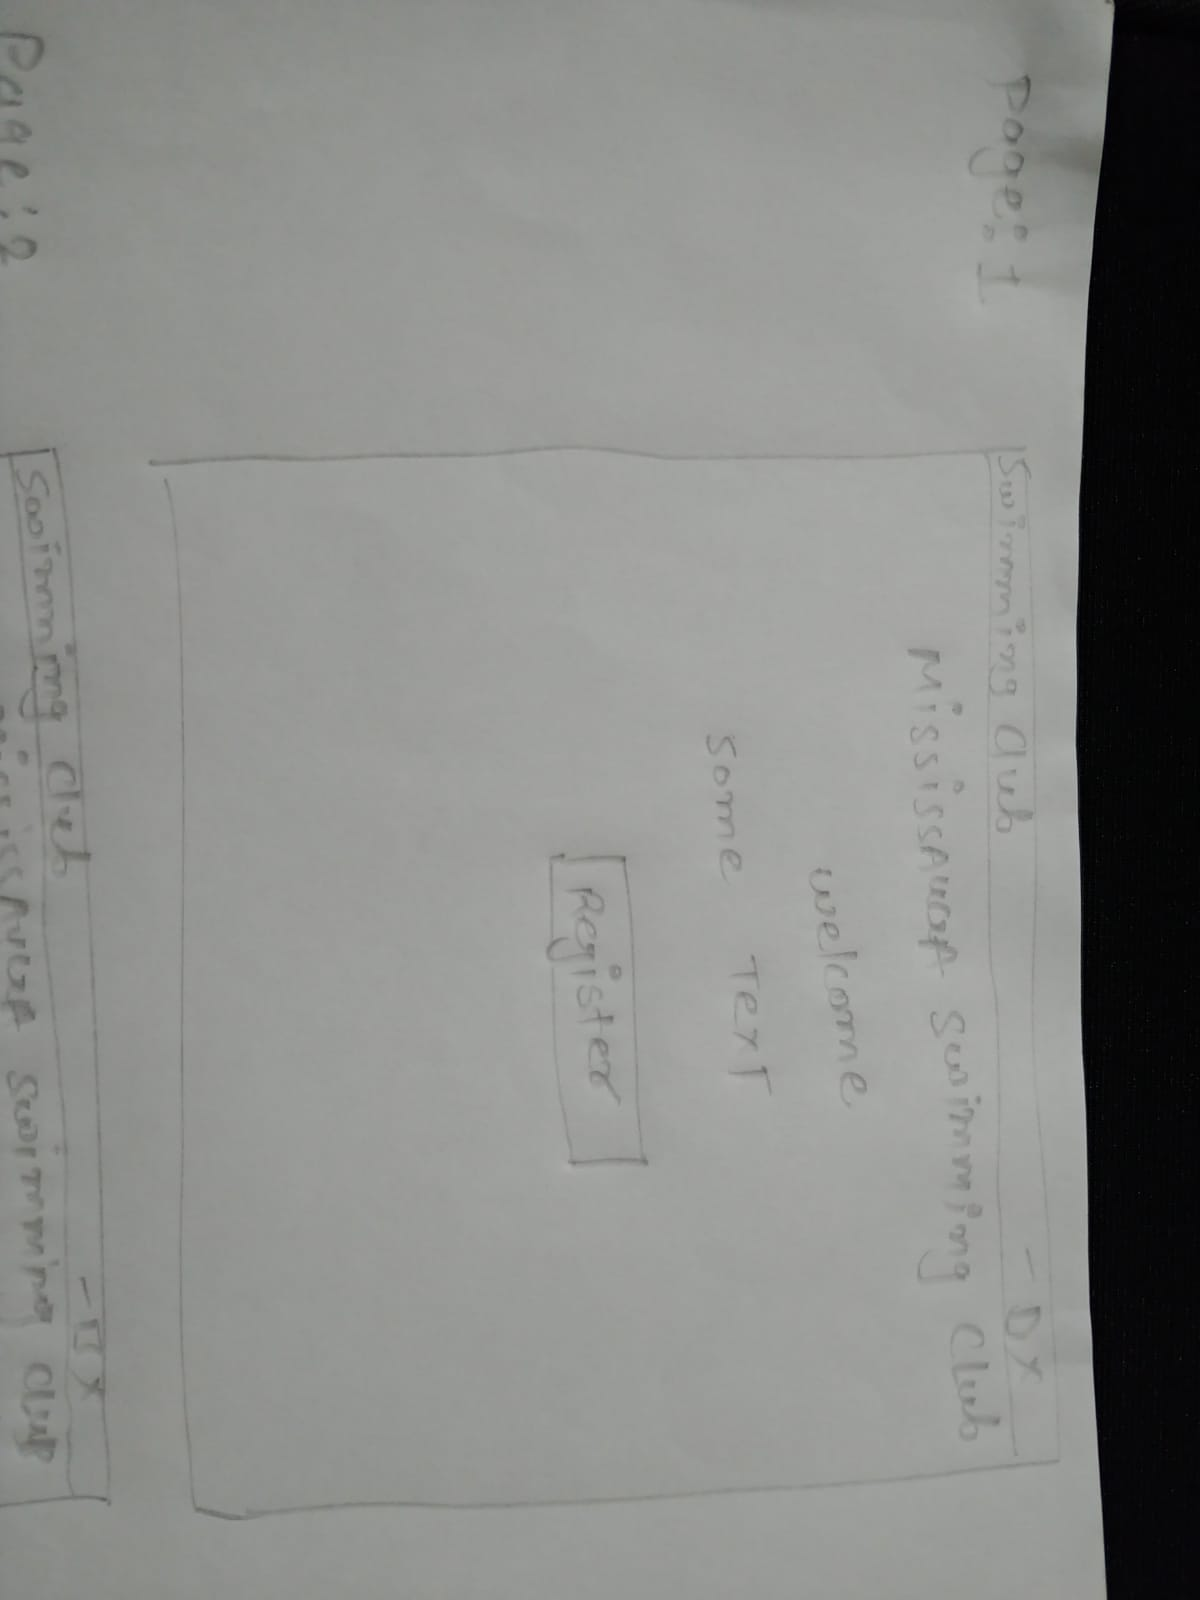 Page: 1
Swimming Club - □ X
MississAugA Swimming Club
welcome
Some Text
Register
Page: 2
Swimming Club - □ X
MississAugA Swimming Club